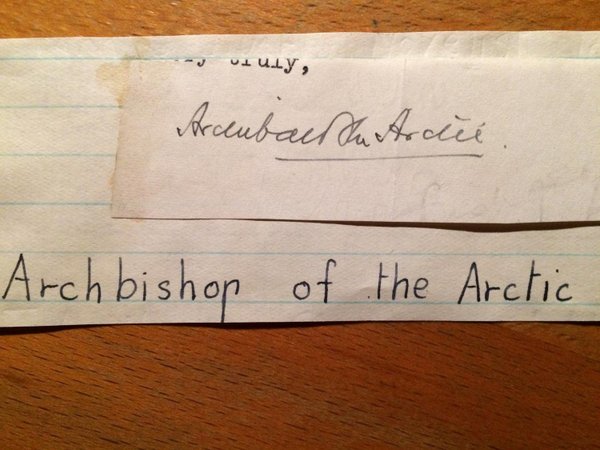 truly,
Archibald The Arctic.
Archbishop of the Arctic